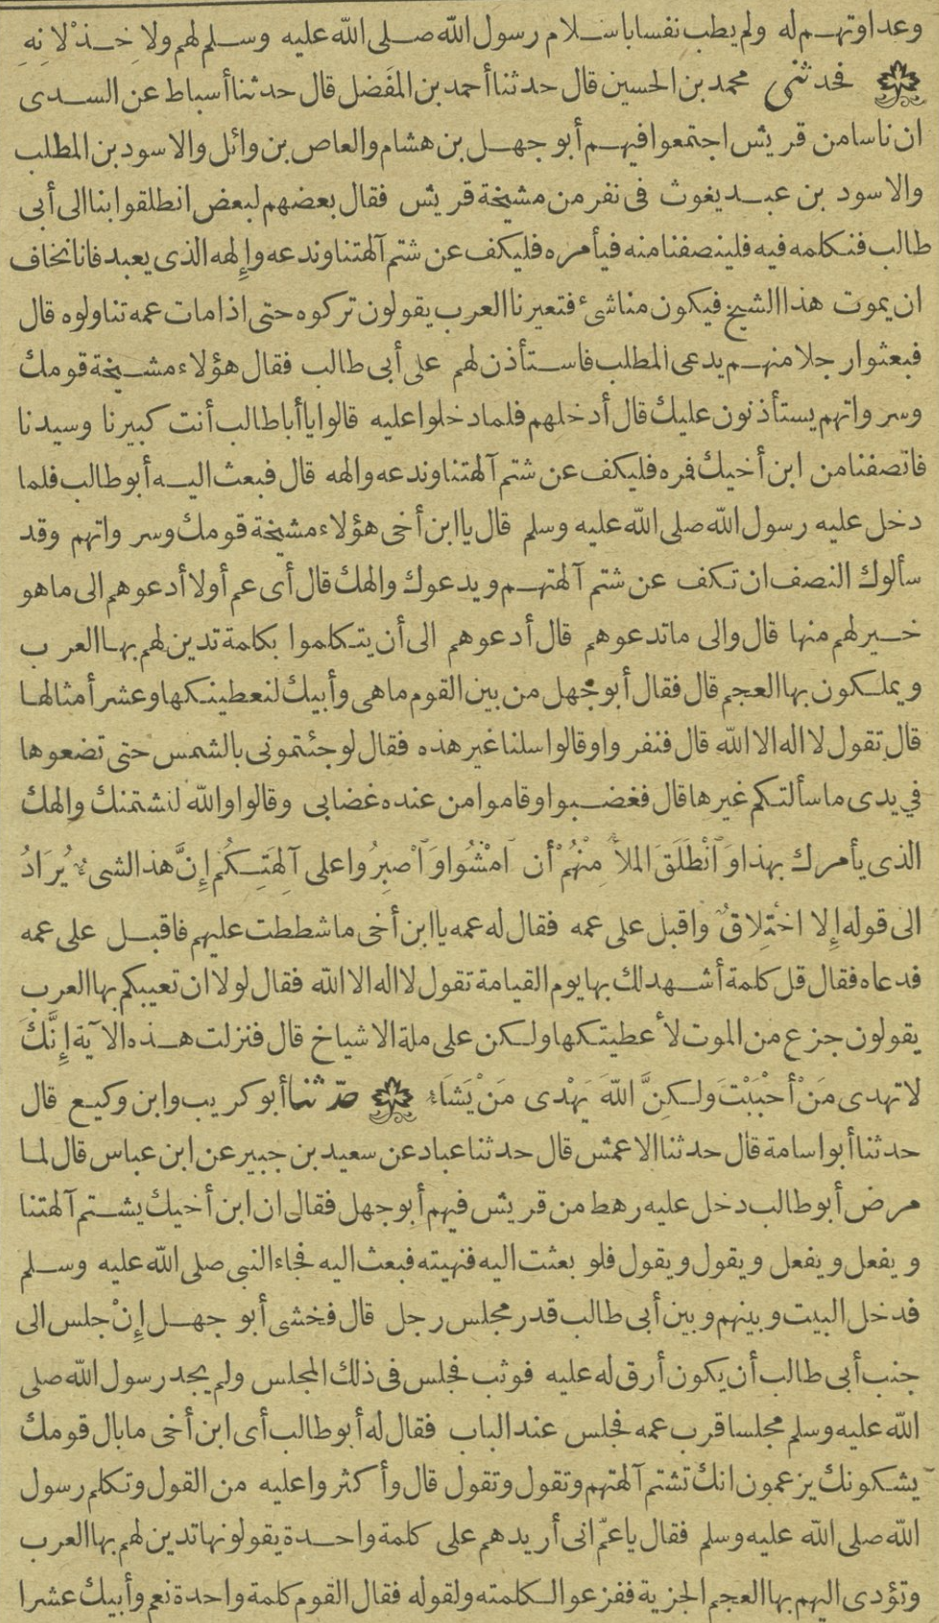 وعداوتهم له ولم يطب نفسا باسلام رسول الله صلى الله عليه وسلم لهم ولا خِذْلانِهِ
فحدثنى محمد بن الحسين قال حدثنا أحمد بن المفضل قال حدثنا أسباط عن السدى
ان ناسا من قريش اجتمعوا فيهم أبو جهل بن هشام والعاص بن وائل والاسود بن المطلب
والاسود بن عبد يغوث فى نفر من مشيخة قريش فقال بعضهم لبعض انطلقوا بنا الى أبى
طالب فنكلمه فيه فلينصفنا منه فيأمره فليكف عن شتم آلهتنا وندعه وإلهه الذى يعبد فانا نخاف
ان يموت هذا الشيخ فيكون منا شىء فتعيرنا العرب يقولون تركوه حتى اذا مات عمه تناولوه قال
فبعثوا رجلا منهم يدعى المطلب فاستأذن لهم على أبى طالب فقال هؤلاء مشيخة قومك
وسرواتهم يستأذنون عليك قال أدخلهم فلما دخلوا عليه قالوا يا أبا طالب أنت كبيرنا وسيدنا
فانصفنا من ابن أخيك فمره فليكف عن شتم آلهتنا وندعه والهه قال فبعث اليه أبو طالب فلما
دخل عليه رسول الله صلى الله عليه وسلم قال يا ابن أخى هؤلاء مشيخة قومك وسرواتهم وقد
سألوك النصف ان تكف عن شتم آلهتهم ويدعوك والهك قال أى عم أولا أدعوهم الى ما هو
خير لهم منها قال والى ما تدعوهم قال أدعوهم الى أن يتكلموا بكلمة تدين لهم بها العرب
ويملكون بها العجم قال فقال أبو جهل من بين القوم ما هى وأبيك لنعطينكها وعشر أمثالها
قال تقول لا اله الا الله قال فنفروا وقالوا سلنا غير هذه فقال لو جئتمونى بالشمس حتى تضعوها
في يدى ما سألتكم غيرها قال فغضبوا وقاموا من عنده غضابى وقالوا والله لنشتمنك والهك
الذى يأمرك بهذا وَٱنْطَلَقَ الملأُ مِنْهُمْ أن ٱمْشُوا وَٱصْبِرُوا على آلِهَتِكُم إِنَّ هذا لشىءٌ يُرَادُ
الى قوله إِلا اخْتِلاقٌ واقبل على عمه فقال له عمه يا ابن أخى ما شططت عليهم فاقبل على عمه
فدعاه فقال قل كلمة أشهد لك بها يوم القيامة تقول لا اله الا الله فقال لولا ان تعيبكم بها العرب
يقولون جزع من الموت لأعطيتكها ولكن على ملة الاشياخ قال فنزلت هذه الآية إِنَّكَ
لا تهدى مَنْ أَحْبَبْتَ ولكِنَّ اللّهَ يَهْدى مَنْ يَشَاءُ حدّثنا أبو كريب وابن وكيع قال
حدثنا أبو اسامة قال حدثنا الاعمش قال حدثنا عباد عن سعيد بن جبير عن ابن عباس قال لما
مرض أبو طالب دخل عليه رهط من قريش فيهم أبو جهل فقالى ان ابن أخيك يشتم آلهتنا
ويفعل ويفعل ويقول ويقول فلو بعثت اليه فنهيته فبعث اليه فجاء النبى صلى الله عليه وسلم
فدخل البيت وبينهم وبين أبى طالب قدر مجلس رجل قال فخشى أبو جهل إِنْ جلس الى
جنب أبى طالب أن يكون أرق له عليه فوثب فجلس فى ذلك المجلس ولم يجد رسول الله صلى
الله عليه وسلم مجلسا قرب عمه فجلس عند الباب فقال له أبو طالب أى ابن أخى ما بال قومك
يشكونك يزعمون انك تشتم آلهتهم وتقول وتقول قال وأكثروا عليه من القول وتكلم رسول
الله صلى الله عليه وسلم فقال يا عمّ انى أريدهم على كلمة واحدة يقولونها تدين لهم بها العرب
وتؤدى اليهم بها العجم الجزية ففزعوا لكلمته ولقوله فقال القوم كلمة واحدة نعم وأبيك عشرا